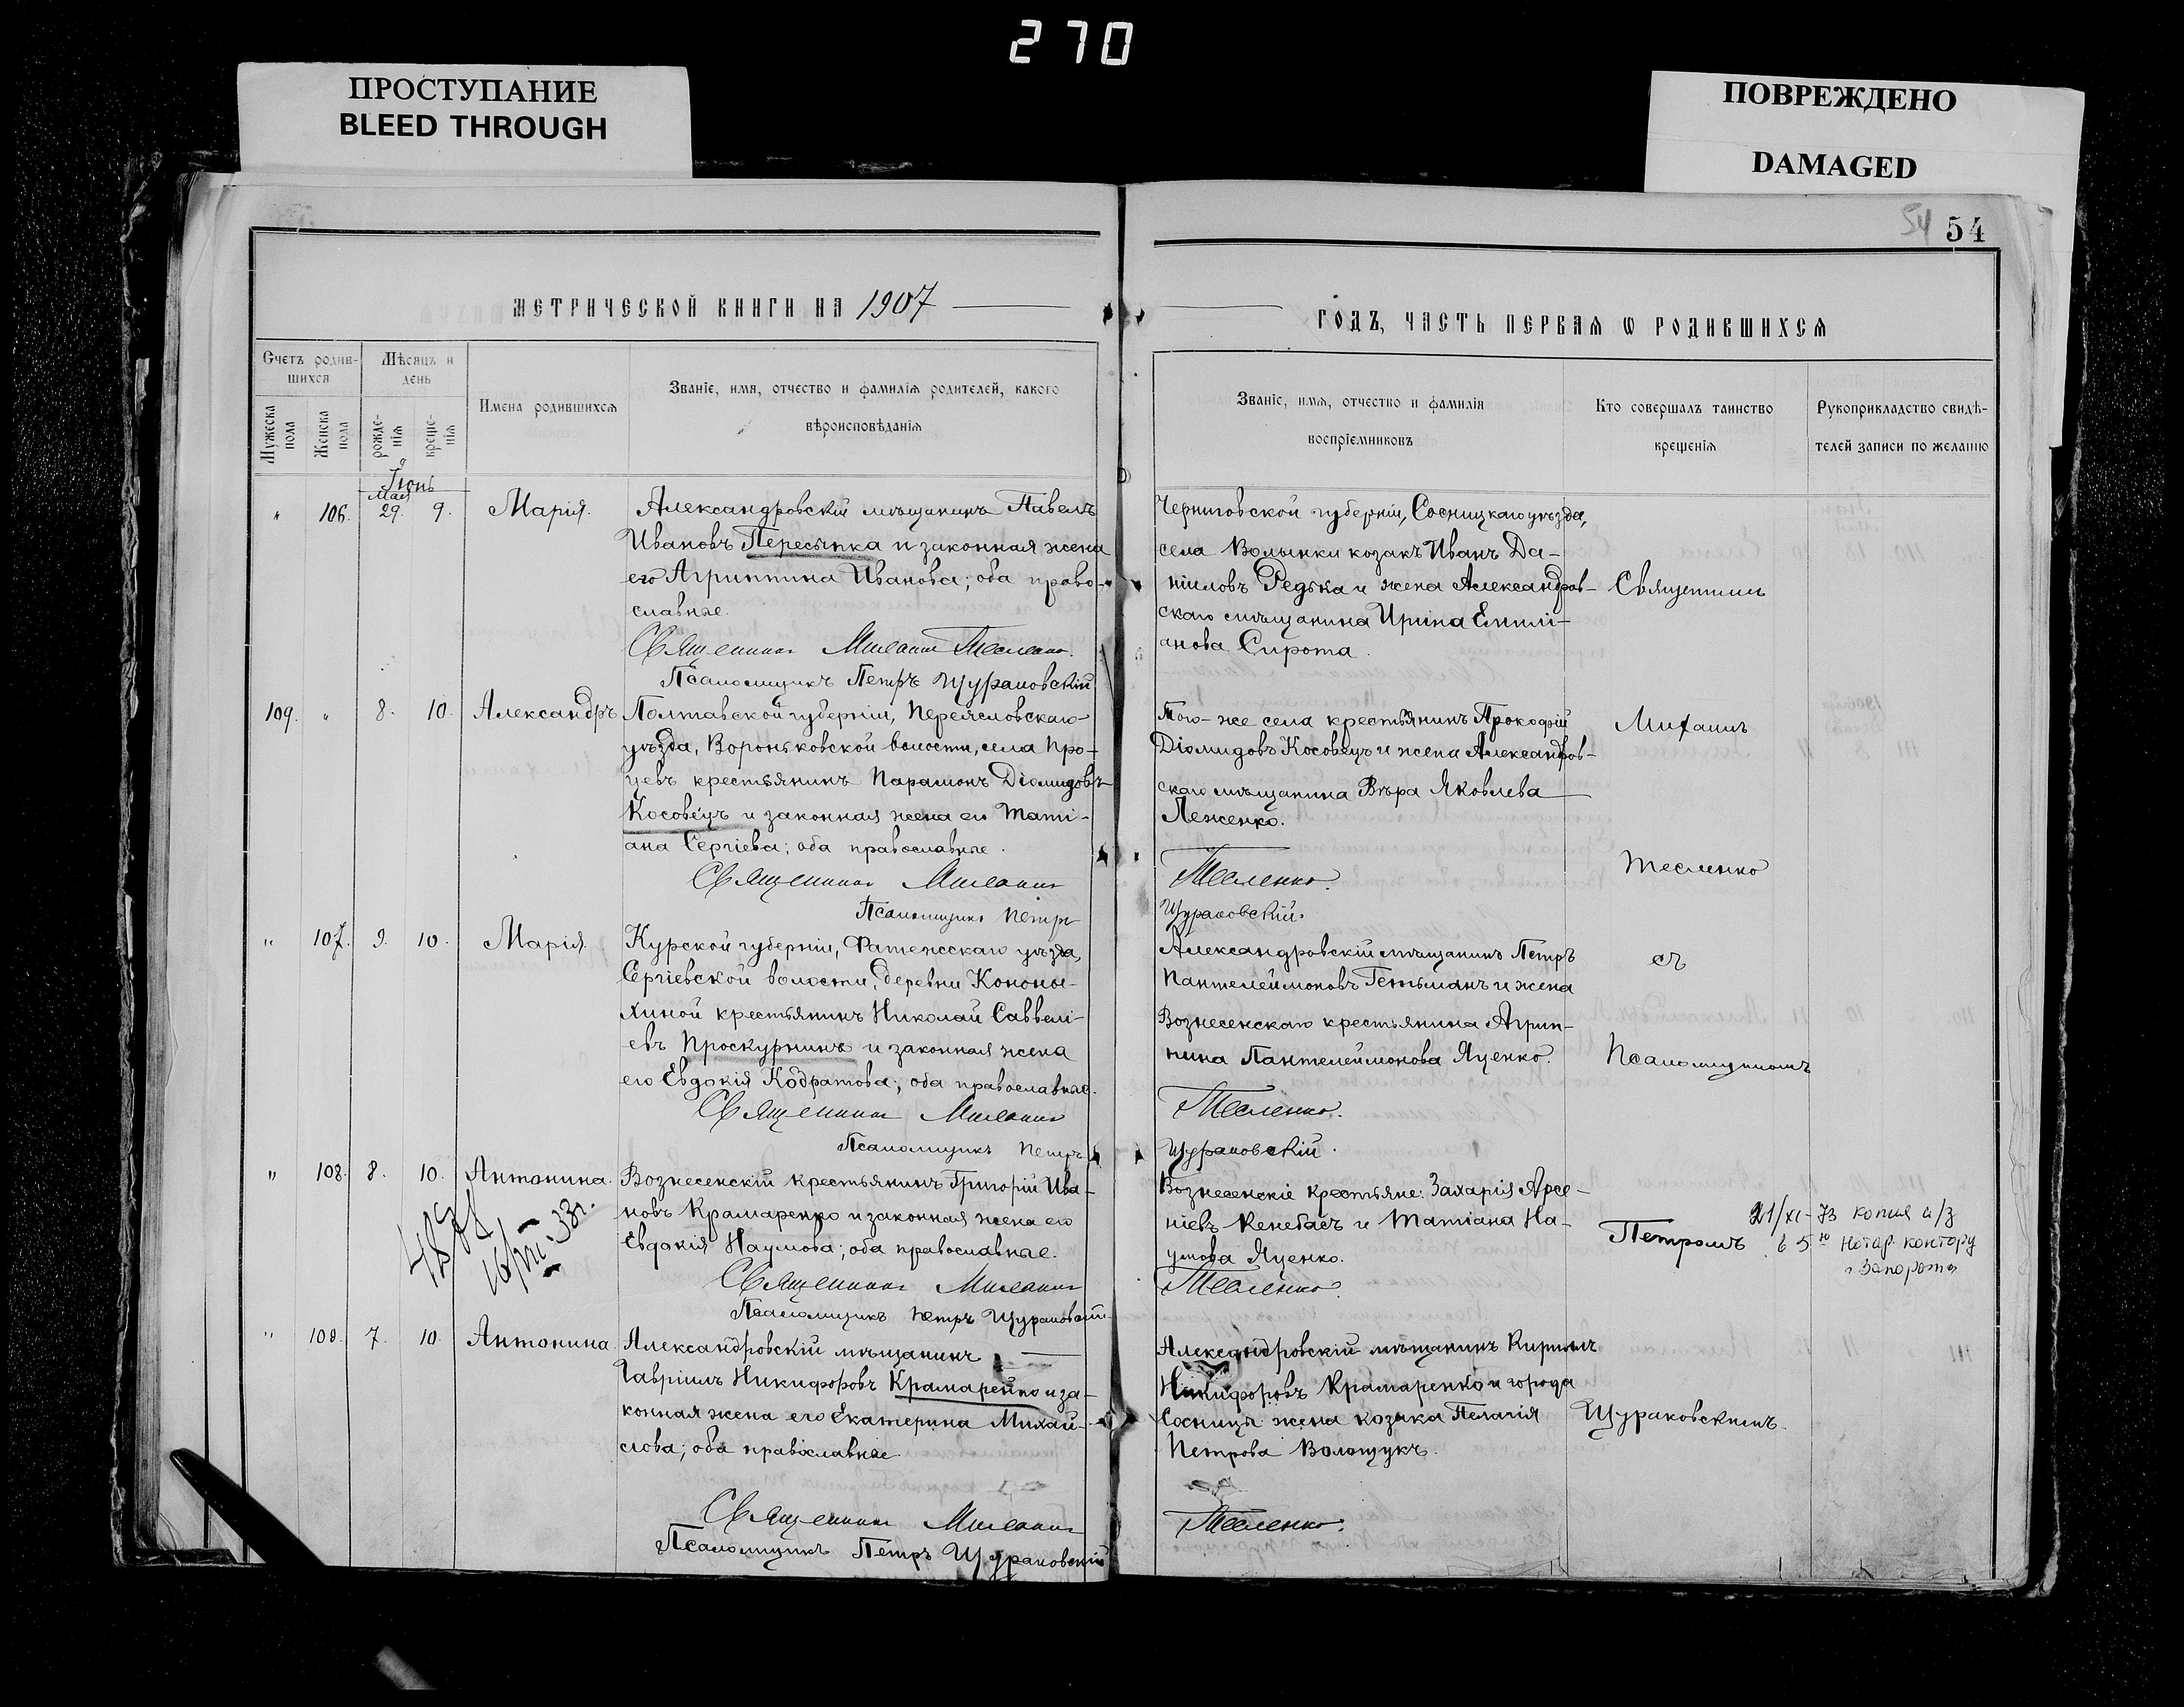 270
ПРОСТУПАНИЕ
BLEED THROUGH
ПОВРЕЖДЕНО
DAMAGED
54
54
МЕТРИЧЕСКОЙ КНИГИ НА 1907
ГОДЪ, ЧАСТЬ ПЕРВАЯ Ѡ РОДИВШИХСЯ
Счетъ родив-
шихся
Мѣсяцъ и
день
Мужеска
пола
Женска
пола
рожде-
нія
креще-
нія
Имена родившихся
Званіе, имя, отчество и фамилія родителей, какого
вѣроисповѣданія
Званіе, имя, отчество и фамилія
воспріемниковъ
Кто совершалъ таинство
крещенія
Рукоприкладство свидѣ-
телей записи по желанію
Іюнь
Мая
" 106. 29. 9. Марія.
Александровскій мѣщанинъ Павелъ
Ивановъ Пересыпка и законная жена
его Агриппина Иванова; оба право-
славные.
Священникъ Михаилъ Тесленко.
Псаломщикъ Петръ Щураковскій
Черниговской губерніи, Сосницкаго уѣзда,
села Волынки козакъ Иванъ Да-
ніиловъ Редька и жена Александров-
скаго мѣщанина Ирина Емилі-
анова Сирота.
Священникъ
109. " 8. 10. Александръ
Полтавской губерніи, Переяславскаго
уѣзда, Вороньковской волости, села Про-
цевъ крестьянинъ Парамонъ Діомидовъ
Косовецъ и законная жена его Таті-
ана Сергіева; оба православные.
Священникъ Михаилъ
Псаломщикъ Петръ
Того-же села крестьянинъ Прокофій
Діомидовъ Косовецъ и жена Александров-
скаго мѣщанина Вѣра Яковлева
Леженко.
Тесленко.
Щураковскій.
Михаилъ
Тесленко
" 107. 9. 10. Марія.
Курской губерніи, Фатежскаго уѣзда,
Сергіевской волости, деревни Кононы-
хиной крестьянинъ Николай Саввелі-
евъ Проскурнинъ и законная жена
его Евдокія Кодратова; оба православные.
Священникъ Михаилъ
Псаломщикъ Петръ
Александровскій мѣщанинъ Петръ
Пантелеймоновъ Гетьманъ и жена
Вознесенскаго крестьянина Агрип-
пина Пантелеймонова Яценко.
Тесленко.
Щураковскій.
съ
Псаломщикомъ
" 108. 8. 10. Антонина.
16/VIII-33г.
Вознесенскій крестьянинъ Григорій Ива-
новъ Крамаренко и законная жена его
Евдокія Наумова; оба православные.
Священникъ Михаилъ
Псаломщикъ Петръ Щураковскій
Вознесенскіе крестьяне: Захарія Арсе-
ніевъ Кенебасъ и Татіана На-
умова Яценко.
Тесленко.
Петромъ
21/XI-73 копия а/з
в 5ю Нотар. контору
г. Запорожья
" 109. 7. 10. Антонина
Александровскій мѣщанинъ
Гавріилъ Никифоровъ Крамаренко и за-
конная жена его Екатерина Михай-
лова; оба православные.
Священникъ Михаилъ
Псаломщикъ Петръ Щураковскій
Александровскій мѣщанинъ Кириллъ
Никифоровъ Крамаренко и города
Сосницы жена козака Пелагія
Петрова Волощукъ.
Тесленко.
Щураковскимъ.